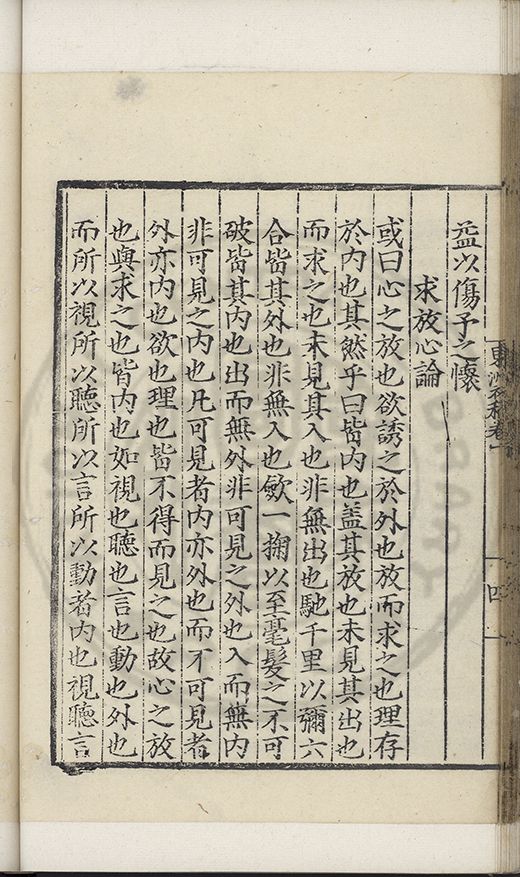 益以傷予之懷
求放心論
或曰心之放也欲誘之於外也放而求之也理存
於内也其然乎曰皆内也盖其放也未見其出也
而求之也未見其入也非無出也馳千里以彌六
合皆其外也非無入也斂一掬以至毫髮之不可
破皆其内也出而無外非可見之外也入而無内
非可見之内也凡可見者内亦外也而不可見者
外亦内也欲也理也皆不得而見之也故心之放
也與求之也皆内也如視也聽也言也動也外也
而所以視所以聽所以言所以動者内也視聽言
卷一
四